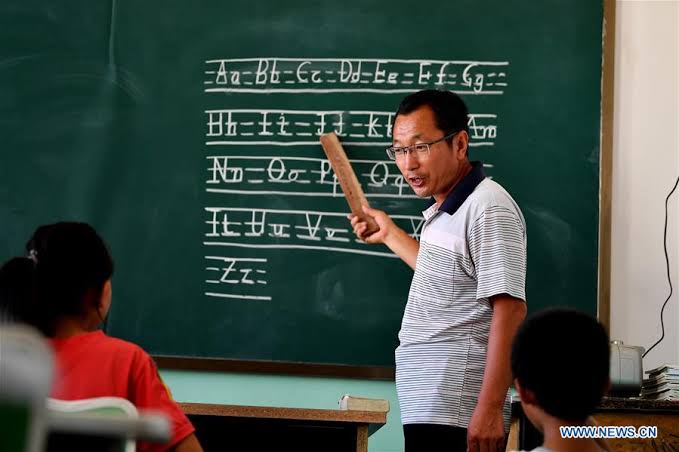 Aa Bb Cc Dd Ee Ff Gg
Hh Ii Jj Kk Mm
Nn Oo Pp Qq
Tt Uu Vv X
Zz
WWW.NEWS.CN